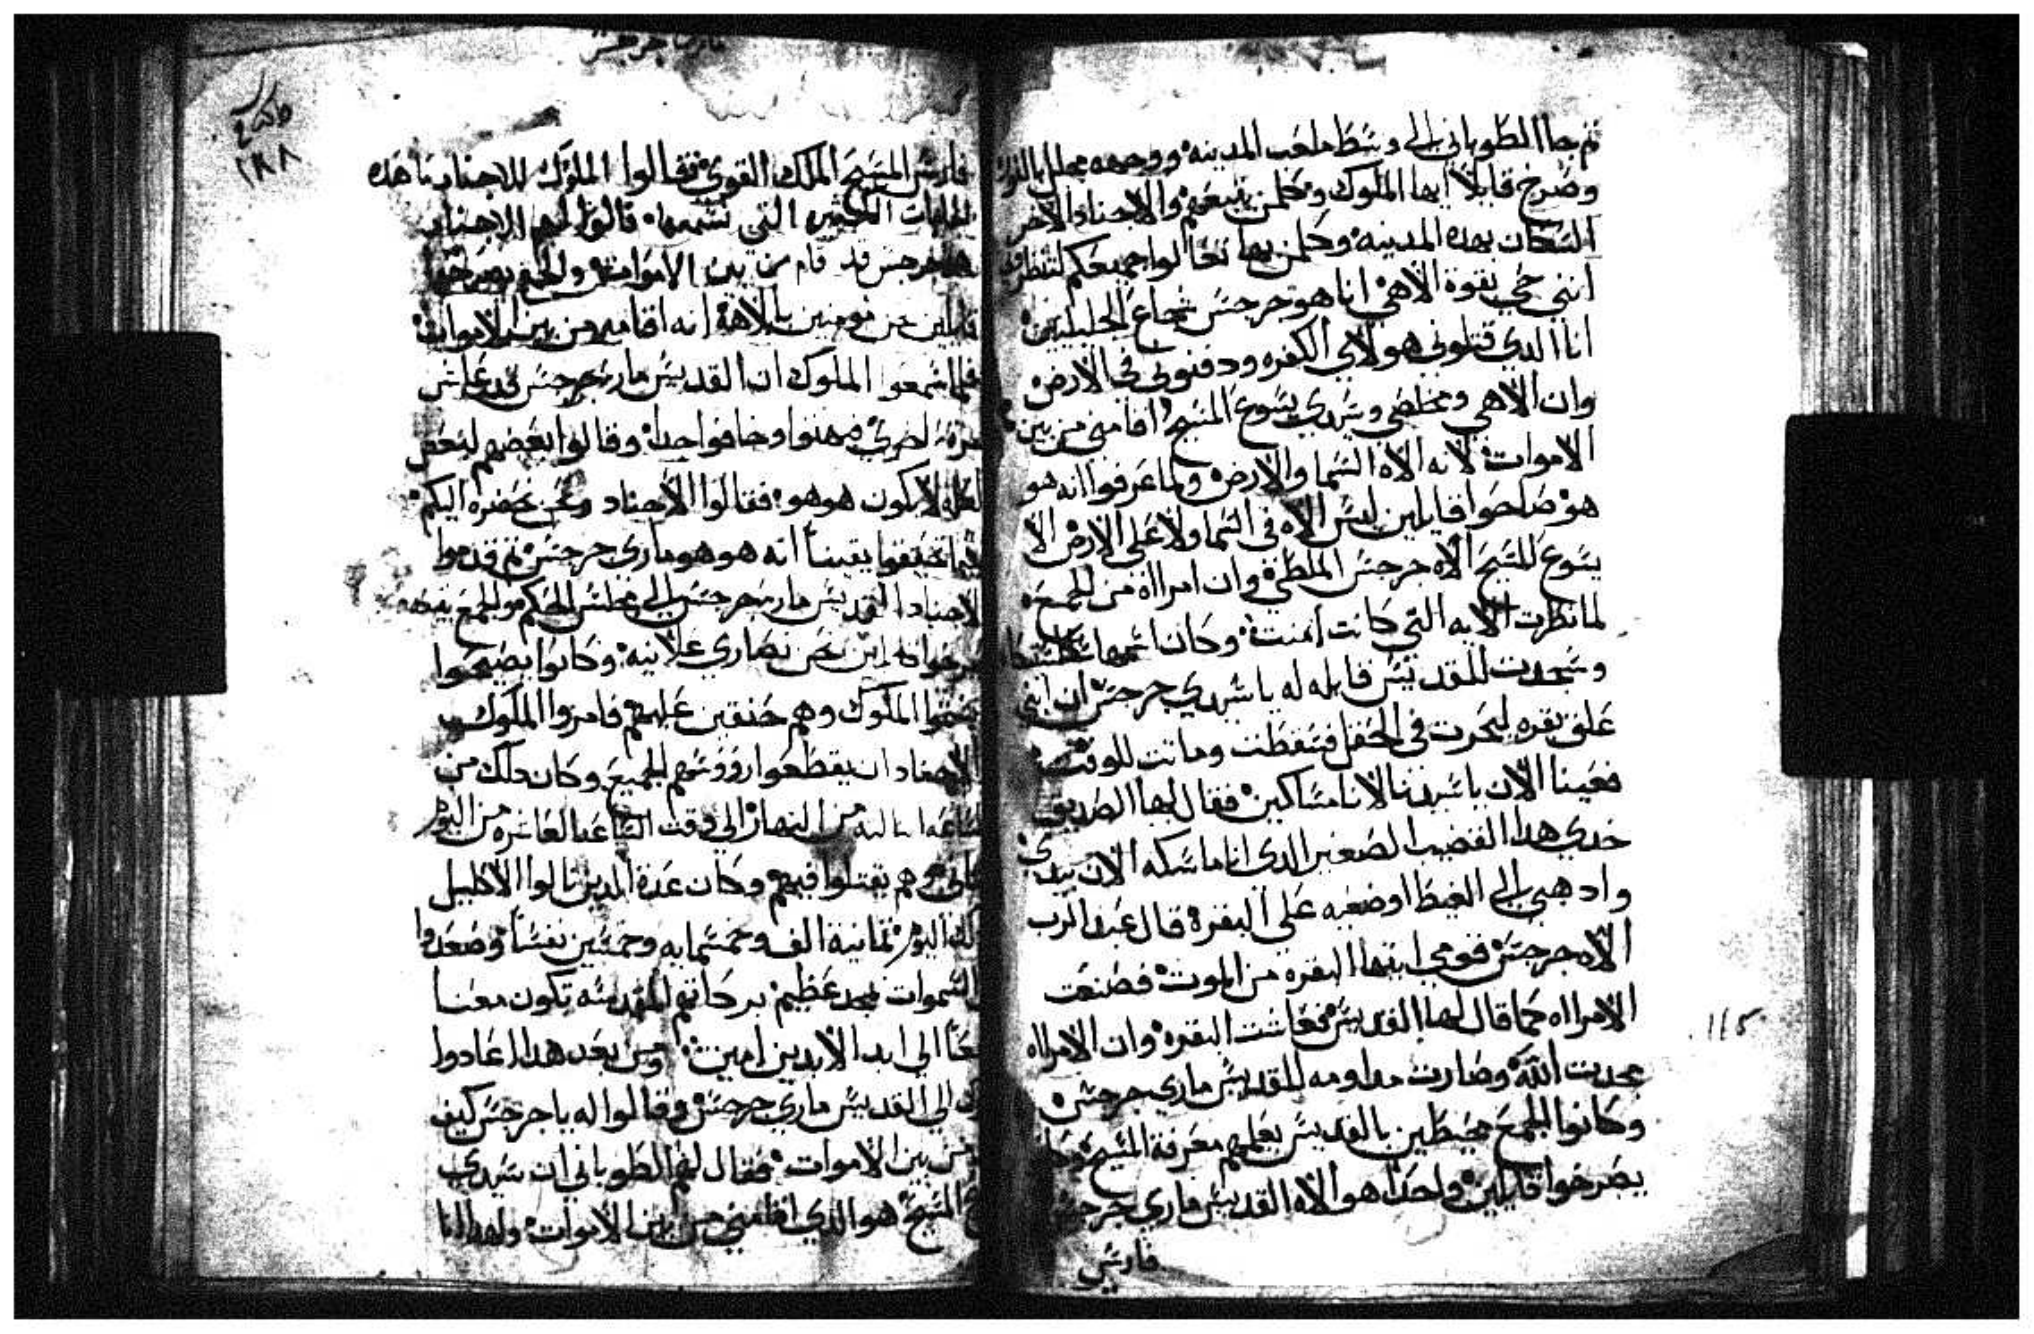 ثم جا الطوباني الي وسط ملعب المدينه ووجهه مجلل بالنور
وصرخ قايلاً ايها الملوك وكلمن يتبعهم والاجناد الاخر
السكان بهده المدينه وكلمن بها تعالوا جميعكم لتنظروا
انني حي بقوة الاهي انا هو جرجس شجاع الجليليين
انا الدي قتلوني هولاي الكفره ودفنوني في الارض
وان الاهي ومخلصي وسيدي يسوع المسيح اقامني من بين
الاموات لانه الاه السما والارض ولما عرفوا انه هو
هو صاحوا قايلين ليس الاه في السما ولا علي الارض الا
يسوع المسيح الاه جرجس الملطي وان امراه من الجمع
لما نظرت الايه التي كانت امنت وكان اسمها
وسجدت للقديس قايله له يا سيدي جرجس ان ابني
علق بقره ليحرت في الحقل فسقطت وماتت للوقت
فعينا الان يا سيدنا لاننا مساكين فقال لها الصديق
خدي هدا القضيب الصغير الدي انا ماسكه الان بيدي
وادهبي الي الغيط اوضعيه علي البقرة قال عبد الرب
الاه جرجس قومي ايتها البقره من الموت فصنعت
الامراه كما قال لها القديس فعاشت البقره وان الامراه
مجدت الله وصارت مداومه للقديس ماري جرجس
وكانوا الجمع محيطين بالقديس يعلمهم معرفة المسيح وكانوا
يصرخوا قايلين واحداً هو الاه القديس ماري جرجس
فارس
١١٥
مارى جرجس
١٨٨
فارس المسيح الملك القوي فقالوا الملوك للاجناد ما هده
الجلبات الكتيره التي نسمعها قالوا لهم الاجناد
هودا جرجس قد قام من بين الاموات والجمع يصرخوا
قايلين نحن مومنين بالاهه انه اقامه من بين الاموات
فلما سمعوا الملوك ان القديس ماري جرجس قد عاش
مرة اخري بهتوا وخافوا جداً وقالوا بعضهم لبعض
لعله لا يكون هو هو فقالوا الاجناد ونحن نحضره اليكم
فيما تحققوا يقيناً انه هو هو ماري جرجس ثم قدموا
الاجناد القديس ماري جرجس الي مجلس الحكم والجمع يتبعه
صرخوا قايلين نحن نصاري علانيه وكانوا يصيحوا
الملوك وهم حنقين عليهم فامروا الملوك
الاجناد ان يقطعوا رووسهم الجميع وكان دلك من
الساعه التالته من النهار الي وقت الساعه العاشره من اليوم
التاني وهم يقتلوا فيهم وكان عدة الدين نالوا الاكليل
دلك اليوم تمانية الف وخمسمايه وخمسين نفساً وصعدوا
السموات بمجد عظيم بركاتهم المقدسه تكون معنا
معاً الي ابد الابدين امين ومن بعد هدا عادوا
الي القديس ماري جرجس وقالوا له يا جرجس كيف
من بين الاموات فقال لهم الطوباني ان سيدي
المسيح هو الدي اقامني من بين الاموات ولهدا انا